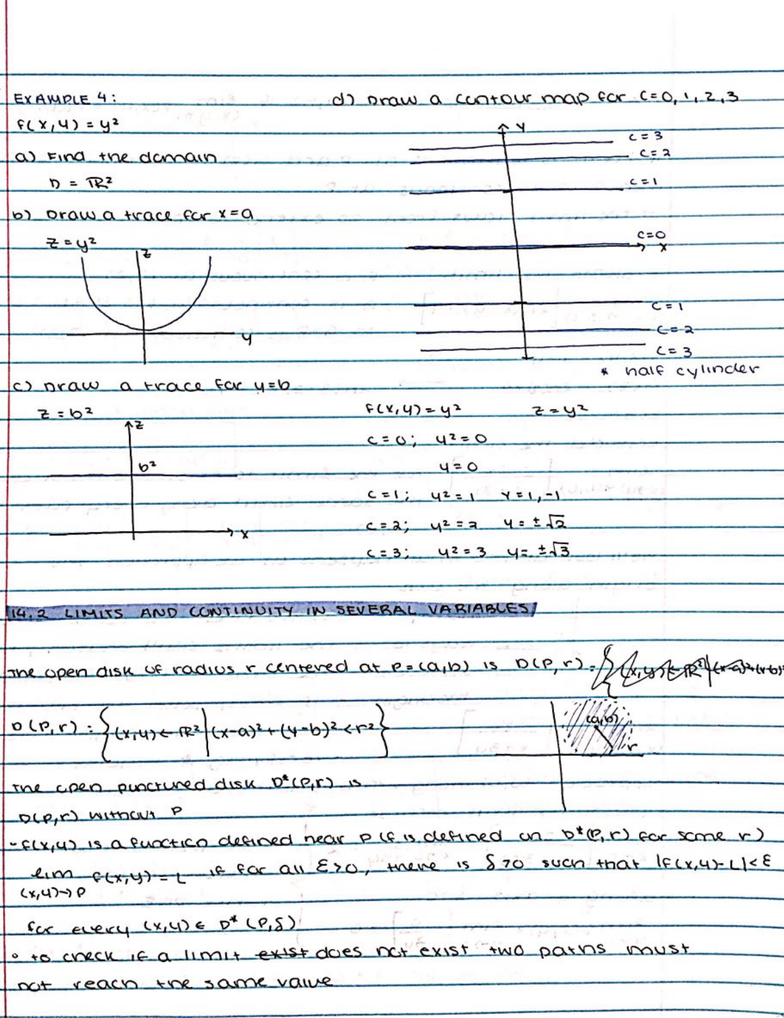 EXAMPLE 4:
f(x,y) = y²
a) Find the domain
D = ℝ²
b) Draw a trace for x=a
z = y²
z
y
c) Draw a trace for y=b
z = b²
z
b²
x
d) Draw a contour map for C=0, 1, 2, 3
y
C=3
C=2
C=1
C=0
x
C=1
C=2
C=3
* half cylinder
f(x,y) = y² z = y²
C=0; y²=0
y=0
C=1; y²=1 y=1,-1
C=2; y²=2 y=±√2
C=3; y²=3 y=±√3
14.2 LIMITS AND CONTINUITY IN SEVERAL VARIABLES
The open disk of radius r centered at P=(a,b) is D(P,r) =
D(P,r) = {(x,y) ∈ ℝ² | (x-a)²+(y-b)² < r²}
(a,b)
r
The open punctured disk D*(P,r) is
D(P,r) without P
-f(x,y) is a function defined near P (f is defined on D*(P,r) for some r)
lim f(x,y) = L if for all ε>0, there is δ>0 such that |f(x,y)-L|<ε
(x,y)→P
for every (x,y) ∈ D*(P,δ)
• to check if a limit exist does not exist two paths must
not reach the same value